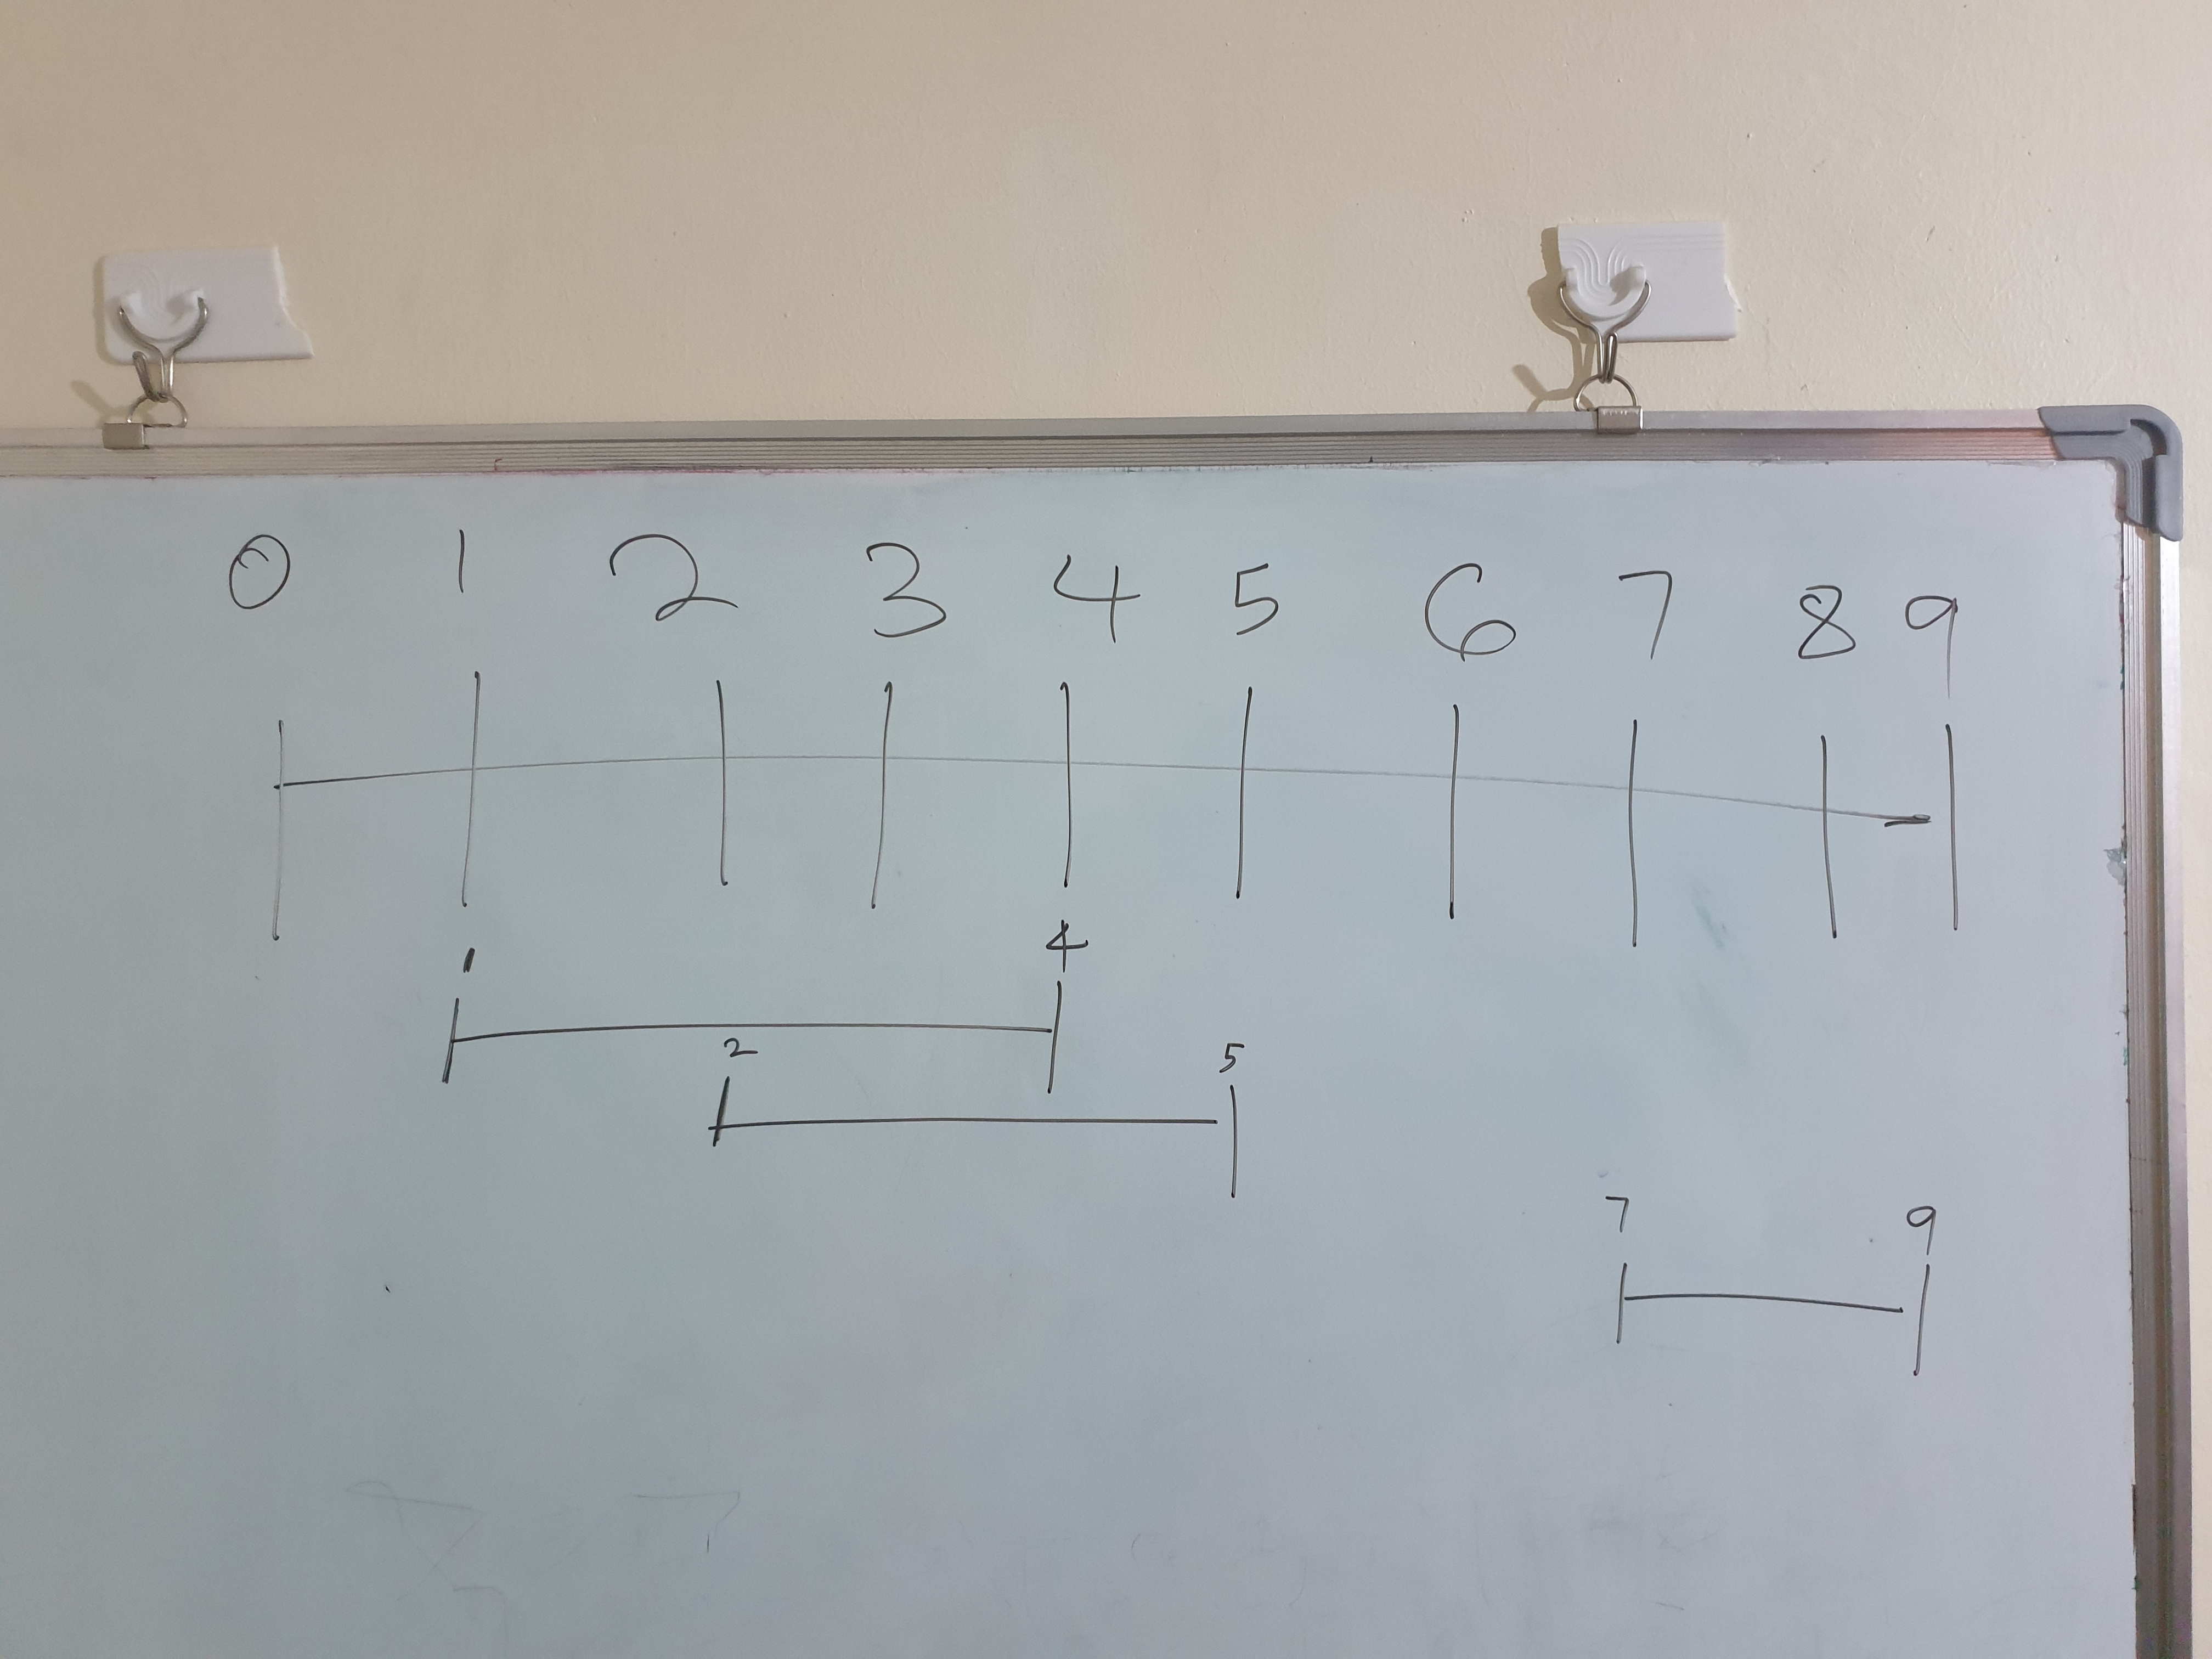 0 1 2 3 4 5 6 7 8 9
1 4
2 5
7 9